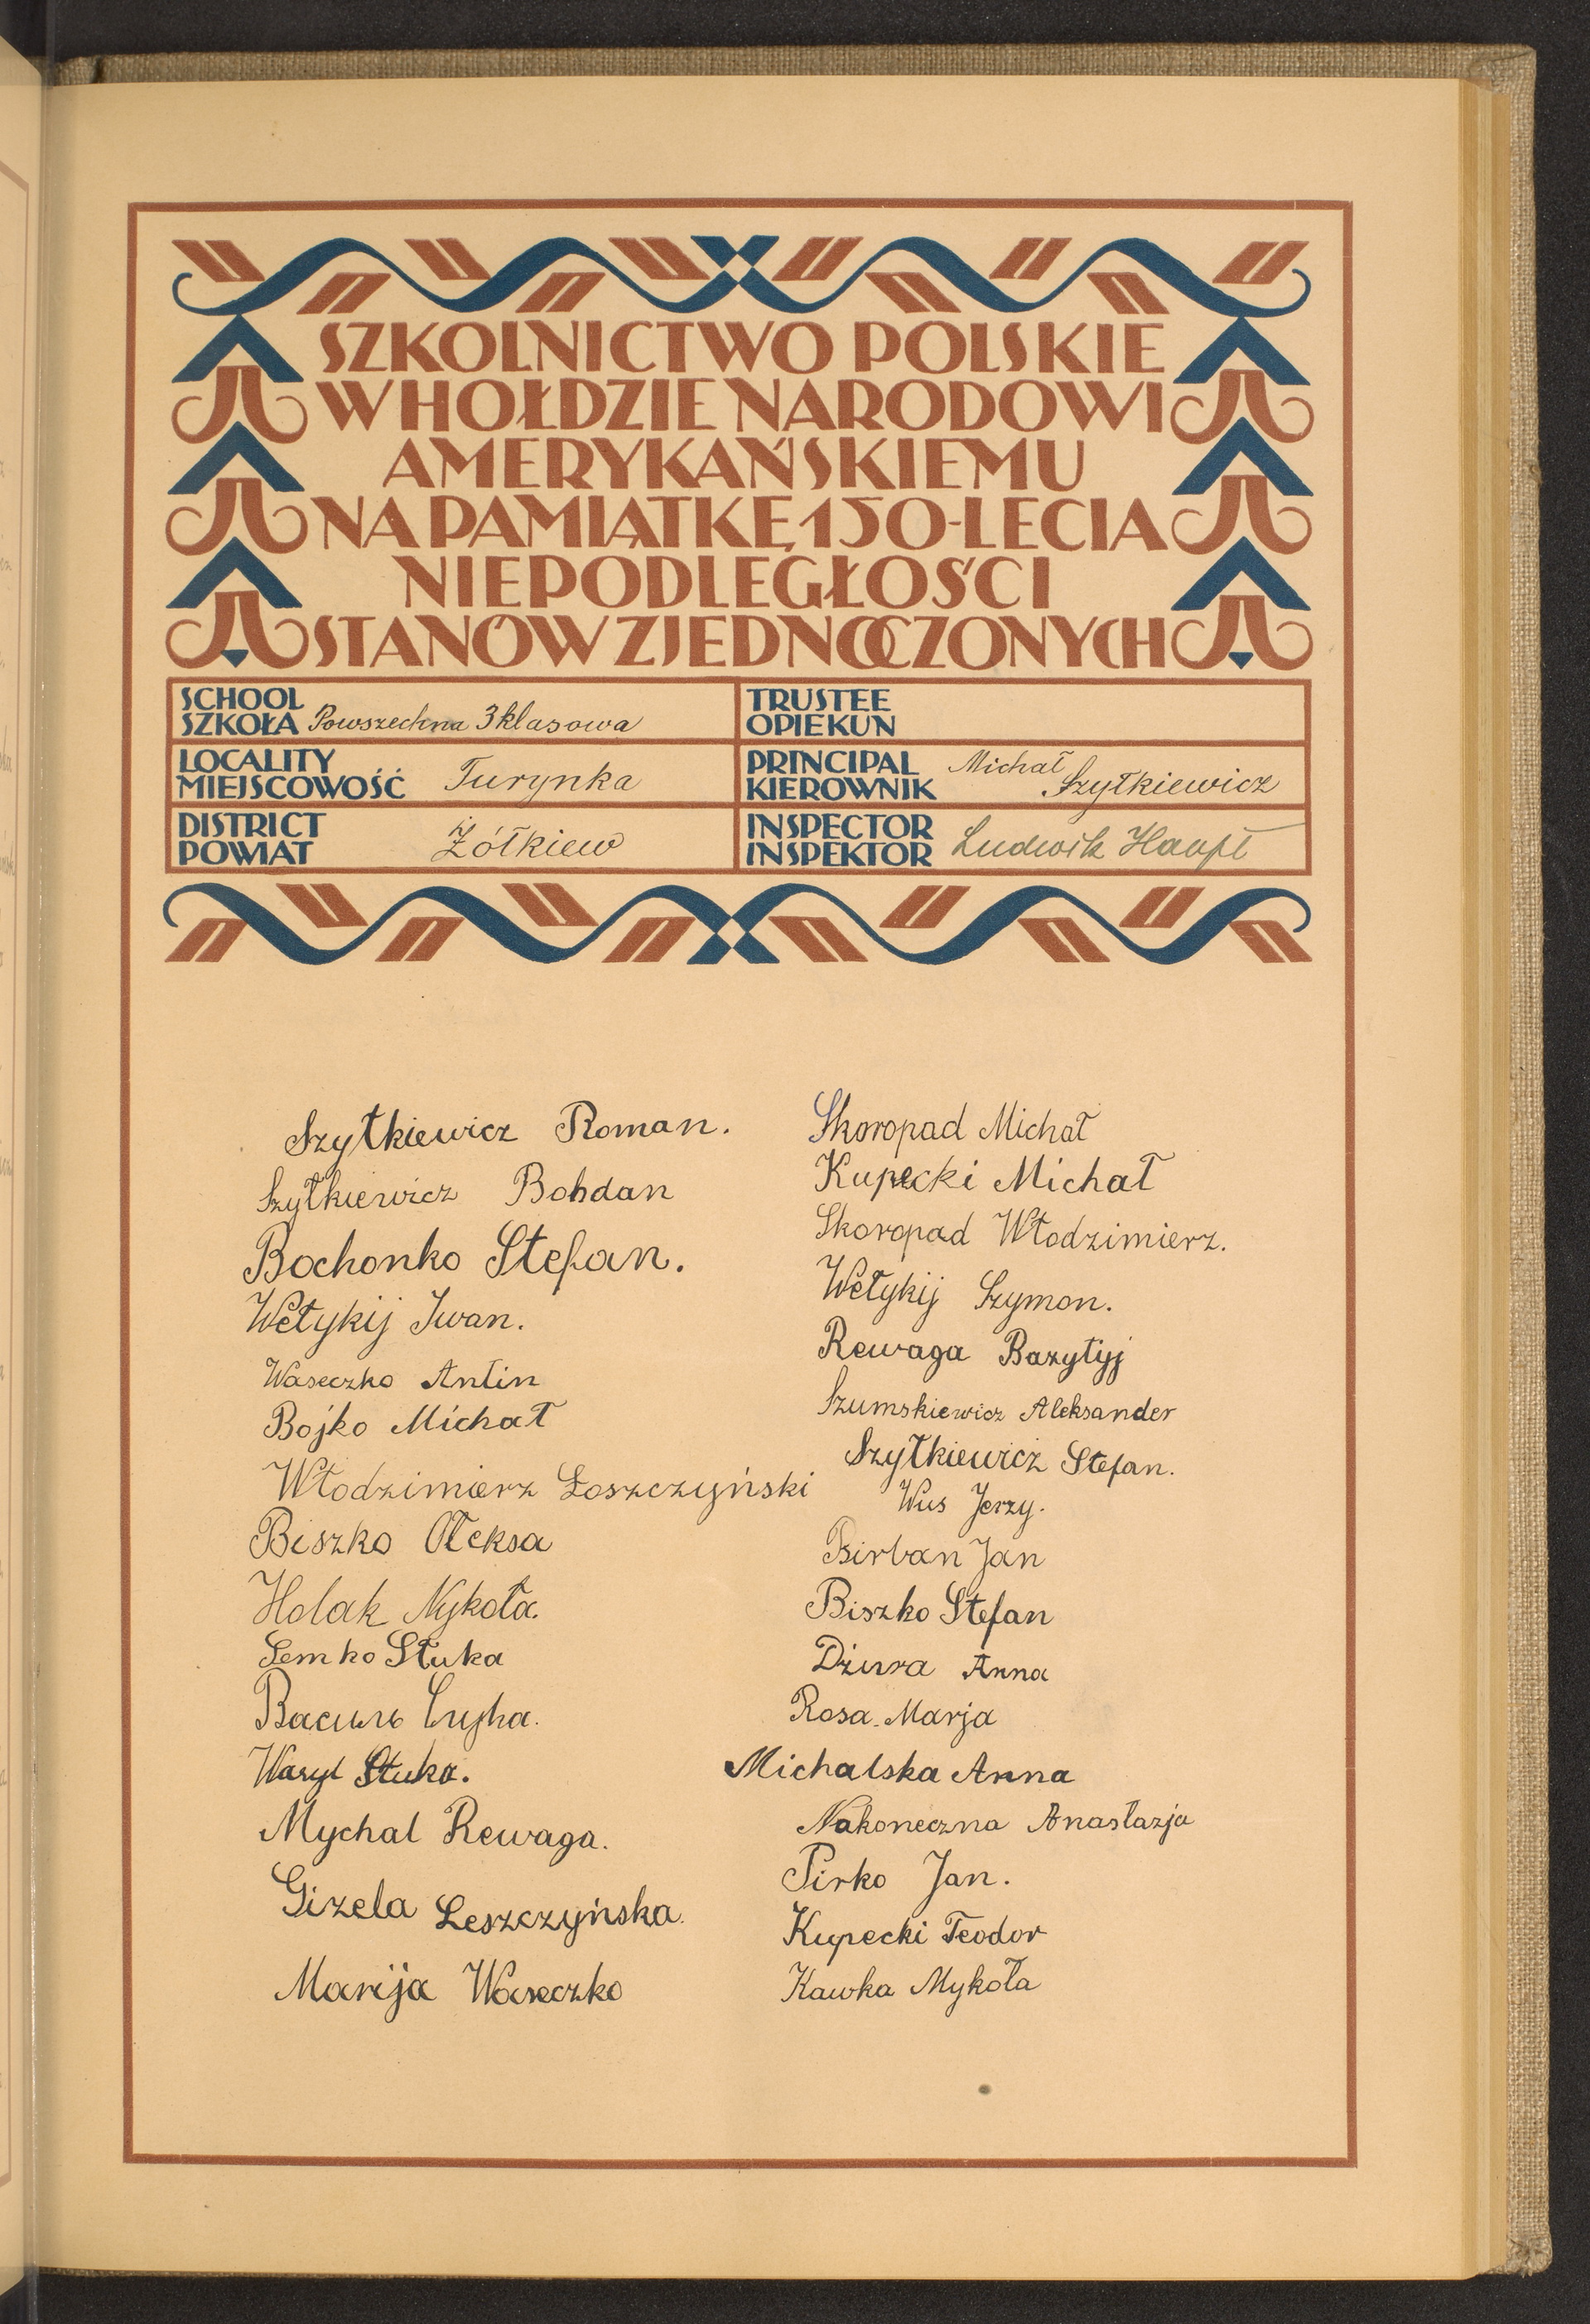 SZKOLNICTWO POLSKIE
W HOŁDZIE NARODOWI
AMERYKAŃSKIEMU
NA PAMIĄTKĘ 150-LECIA
NIEPODLEGŁOŚCI
STANÓW ZJEDNOCZONYCH
SCHOOL
SZKOŁA Powszechna 3 klasowa
TRUSTEE
OPIEKUN
LOCALITY
MIEJSCOWOŚĆ Turynka
PRINCIPAL
KIEROWNIK Michał Szytkiewicz
DISTRICT
POWIAT Żółkiew
INSPECTOR
INSPEKTOR Ludwik Haupt
Szytkiewicz Roman.
Szytkiewicz Bohdan
Bochonko Stefan.
Wełykij Iwan.
Waseczko Antin
Bojko Michał
Włodzimierz Łoszczyński
Biszko Ołeksa
Holak Nykoła.
Semko Stuka
Василь
Wasyl Stuka.
Mychal Rewaga.
Gizela Leszczyńska.
Marija Waseczko
Skoropad Michał
Kupecki Michał
Skoropad Włodzimierz.
Wełykij Szymon.
Rewaga Bazyłyj
Szumskiewicz Aleksander
Szytkiewicz Stefan.
Wus Jerzy.
Birban Jan
Biszko Stefan
Dżura Anna
Rosa Marja
Michalska Anna
Nakoneczna Anastazja
Pirko Jan.
Kupecki Teodor
Kawka Mykoła